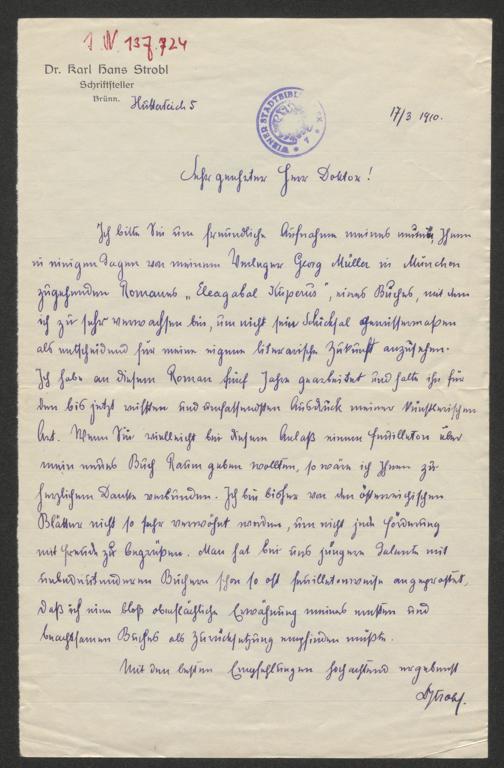 J. N. 137.724
Dr. Karl Hans Strobl
Schriftsteller
Brünn.
Hutterteich 5
WIENER STADTBIBLIOTHEK
17/3 1910.
Sehr geehrter Herr Doktor!
Ich bitte Sie um freundliche Aufnahme meines neuen, Ihnen
in einigen Tagen von meinem Verleger Georg Müller in München
zugehenden Romanes „Eleagabal Kuperus", eines Buches, mit dem
ich zu sehr verwachsen bin, um nicht sein Schicksal gewissermaßen
als entscheidend für meine eigene literarische Zukunft anzusehen.
Ich habe an diesem Roman fünf Jahre gearbeitet und halte ihn für
den bis jetzt reifsten und umfassendsten Ausdruck meiner künstlerischen
Art. Wenn Sie vielleicht bei diesem Anlaß einem Feuilleton über
mein neues Buch Raum geben wollten, so wäre ich Ihnen zu
herzlichem Danke verbunden. Ich bin bisher von den österreichischen
Blätter nicht so sehr verwöhnt worden, um nicht jede Förderung
mit Freude zu begrüßen. Man hat bei uns jüngere Talente mit
unbedeutenderen Büchern schon so oft feuilletonweise angeprostet,
daß ich eine bloß oberflächliche Erwähnung meines ernsten und
beachtsamen Buches als Zurücksetzung empfinden müßte.
Mit den besten Empfehlungen hochachtend ergebenst
DrStrobl.